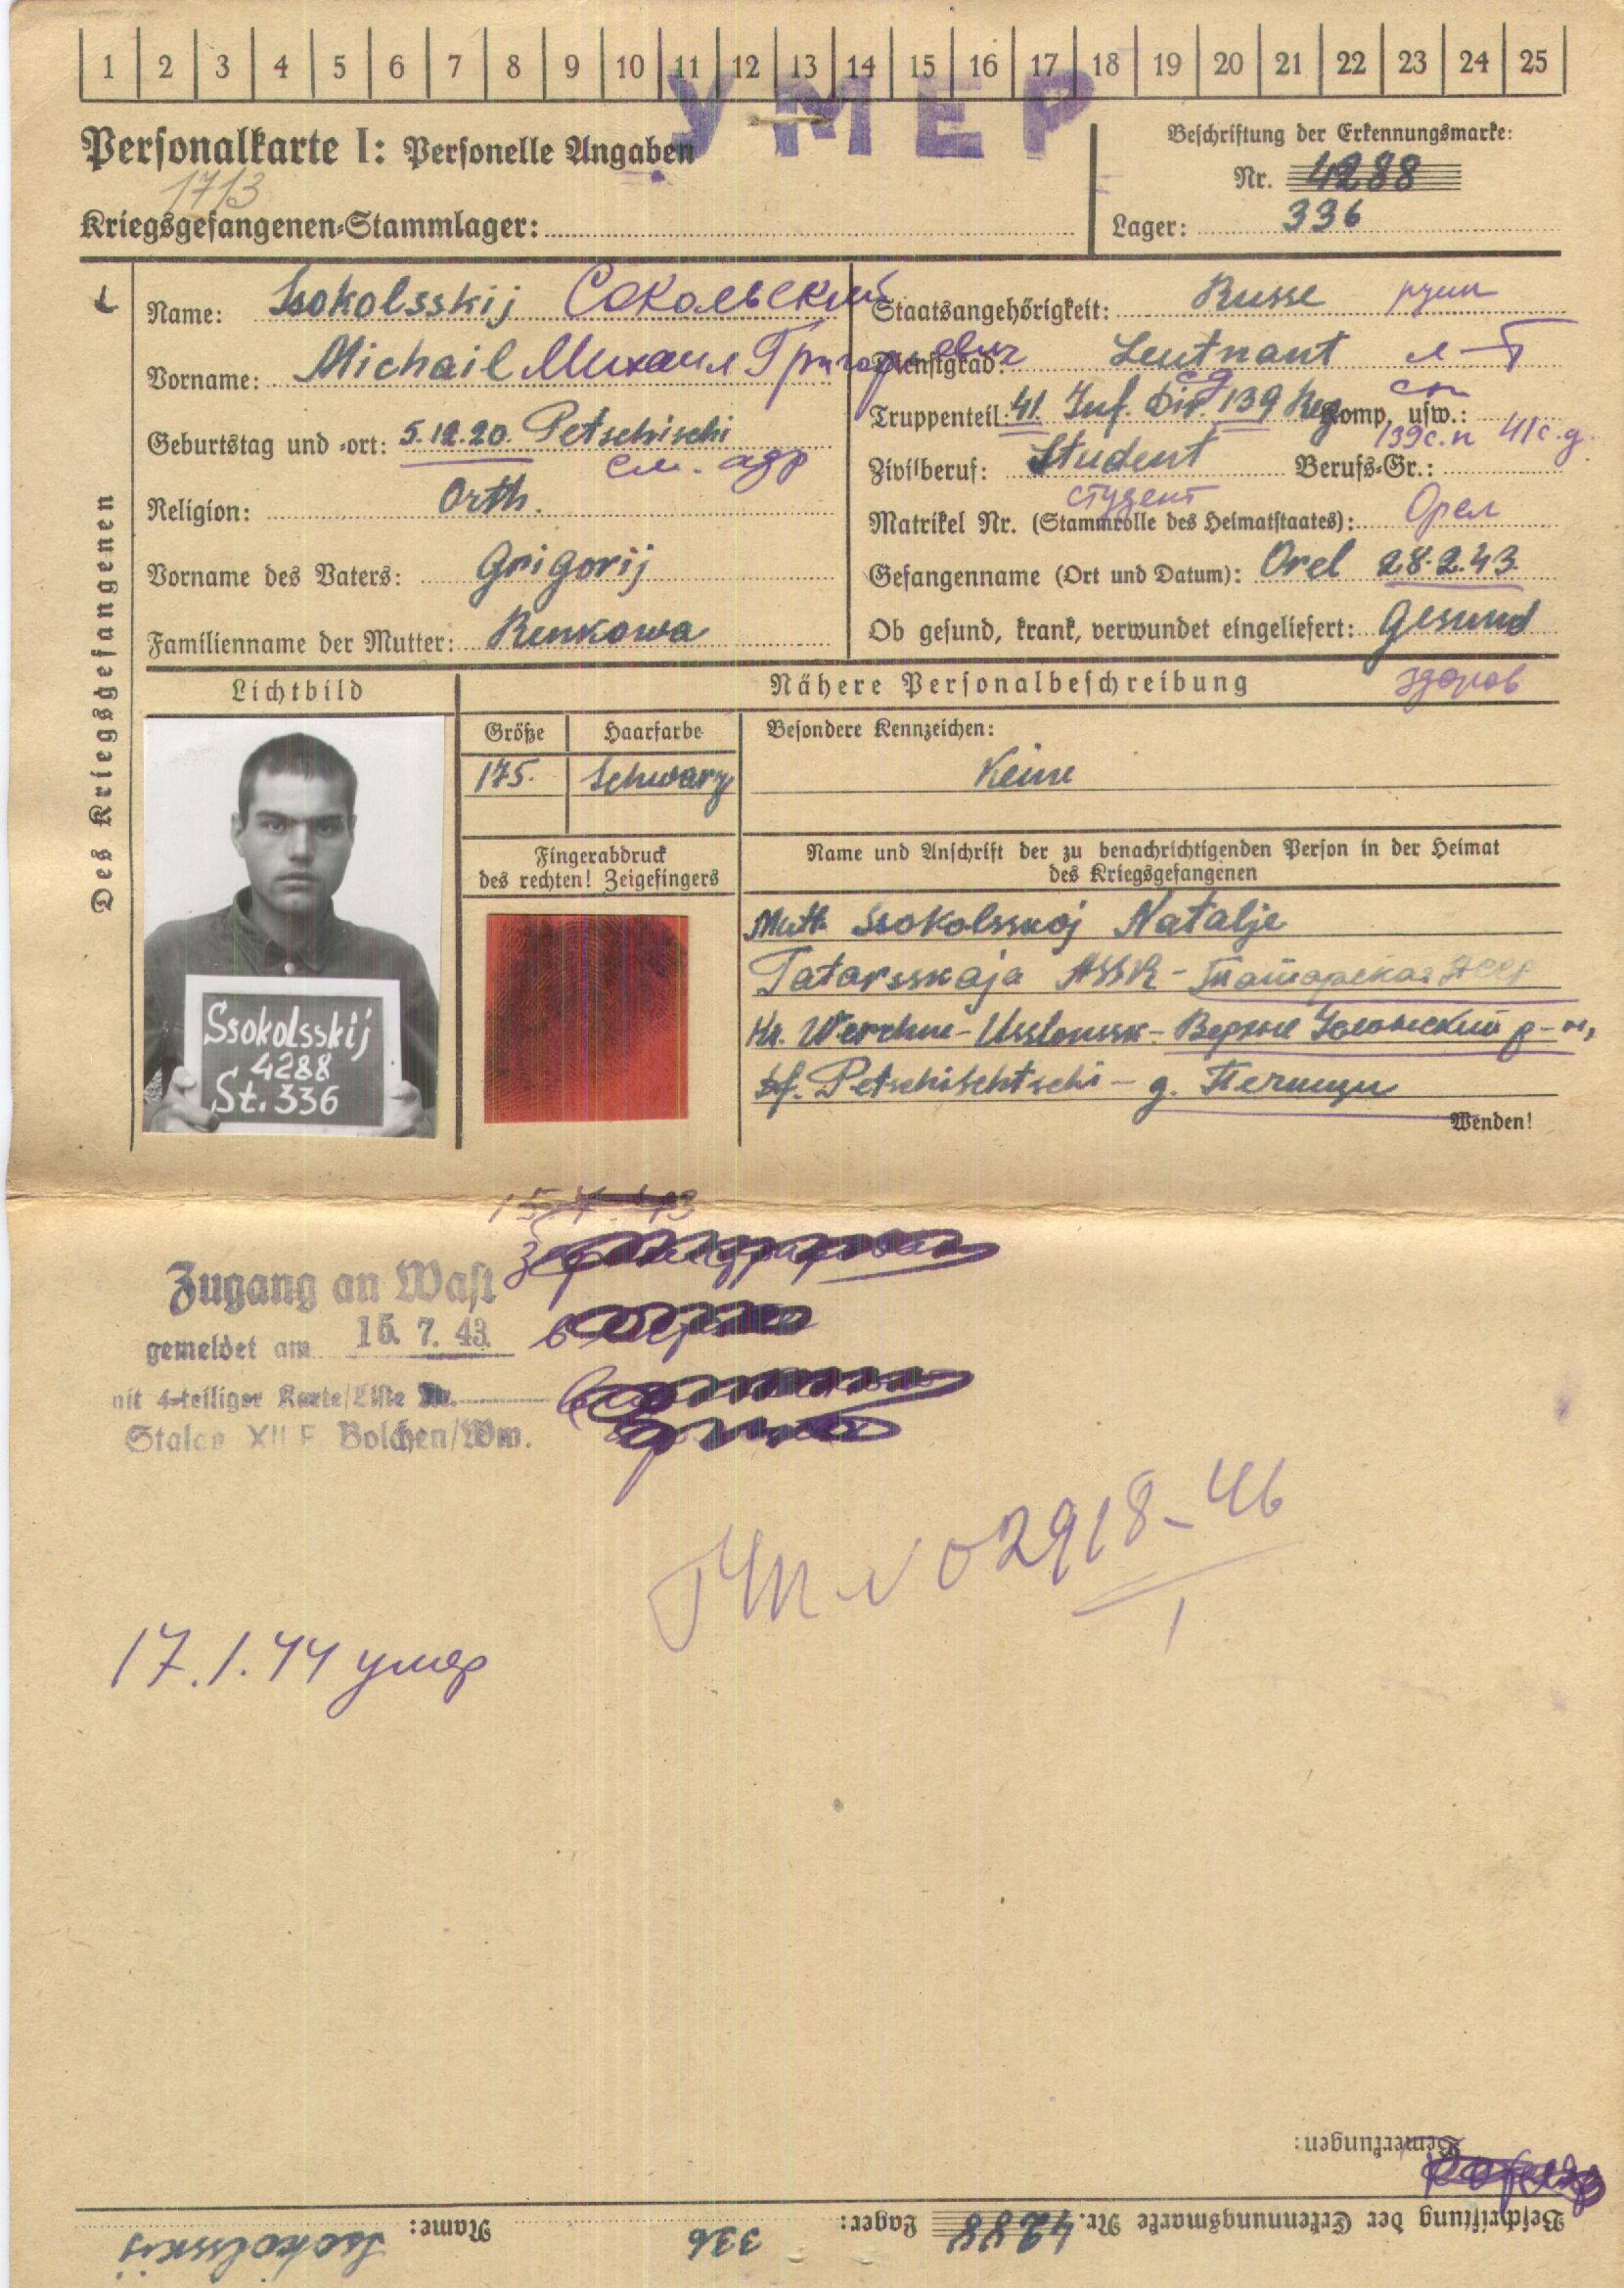 1 2 3 4 5 6 7 8 9 10 11 12 13 14 15 16 17 18 19 20 21 22 23 24 25
УМЕР
Personalkarte I: Personelle Angaben
1713
Kriegsgefangenen-Stammlager:
Beschriftung der Erkennungsmarke:
Nr. 4288
Lager: 336
Des Kriegsgefangenen
Name: Ssokolsskij Сокольский
Vorname: Michail Михаил Григорьевич
Geburtstag und -ort: 5.12.20. Petschischi
см. адр
Religion: Orth.
Vorname des Vaters: Grigorij
Familienname der Mutter: Renkowa
Staatsangehörigkeit: Russe
Dienstgrad: Leutnant л-т
Truppenteil: 41. Inf. Div. 139 Reg Komp. usw.:
сд сп
139 с.п 41 с.д.
Zivilberuf: Student Berufs-Gr.:
студент
Matrikel Nr. (Stammrolle des Heimatstaates): Орел
Gefangenname (Ort und Datum): Orel 28.2.43.
Ob gesund, krank, verwundet eingeliefert: Gesund
здоров
Lichtbild
Nähere Personalbeschreibung
Größe Haarfarbe Besondere Kennzeichen:
175. Schwarz Keine
Fingerabdruck
des rechten! Zeigefingers
Name und Anschrift der zu benachrichtigenden Person in der Heimat
des Kriegsgefangenen
Mutt. Ssokolsskoj Natalje
Tatarsskaja ASSR - Татарская АССР
Kr. Werchne-Usslonssk - Верхне Услонский р-н,
Df. Petschischtschi - д. Печищи
Wenden!
Ssokolsskij
4288
St. 336
15.7.43
Zugang an Wast
gemeldet am 15. 7. 43.
mit 4-teiliger Karte/Liste Nr.
Stalag XII F Bolchen/Wm.
в
№ 02918-46
1
17.1.44 умер
Bemerkungen:
Beschriftung der Erkennungsmarke Nr. 4288 Lager: 336 Name: Ssokolsskij